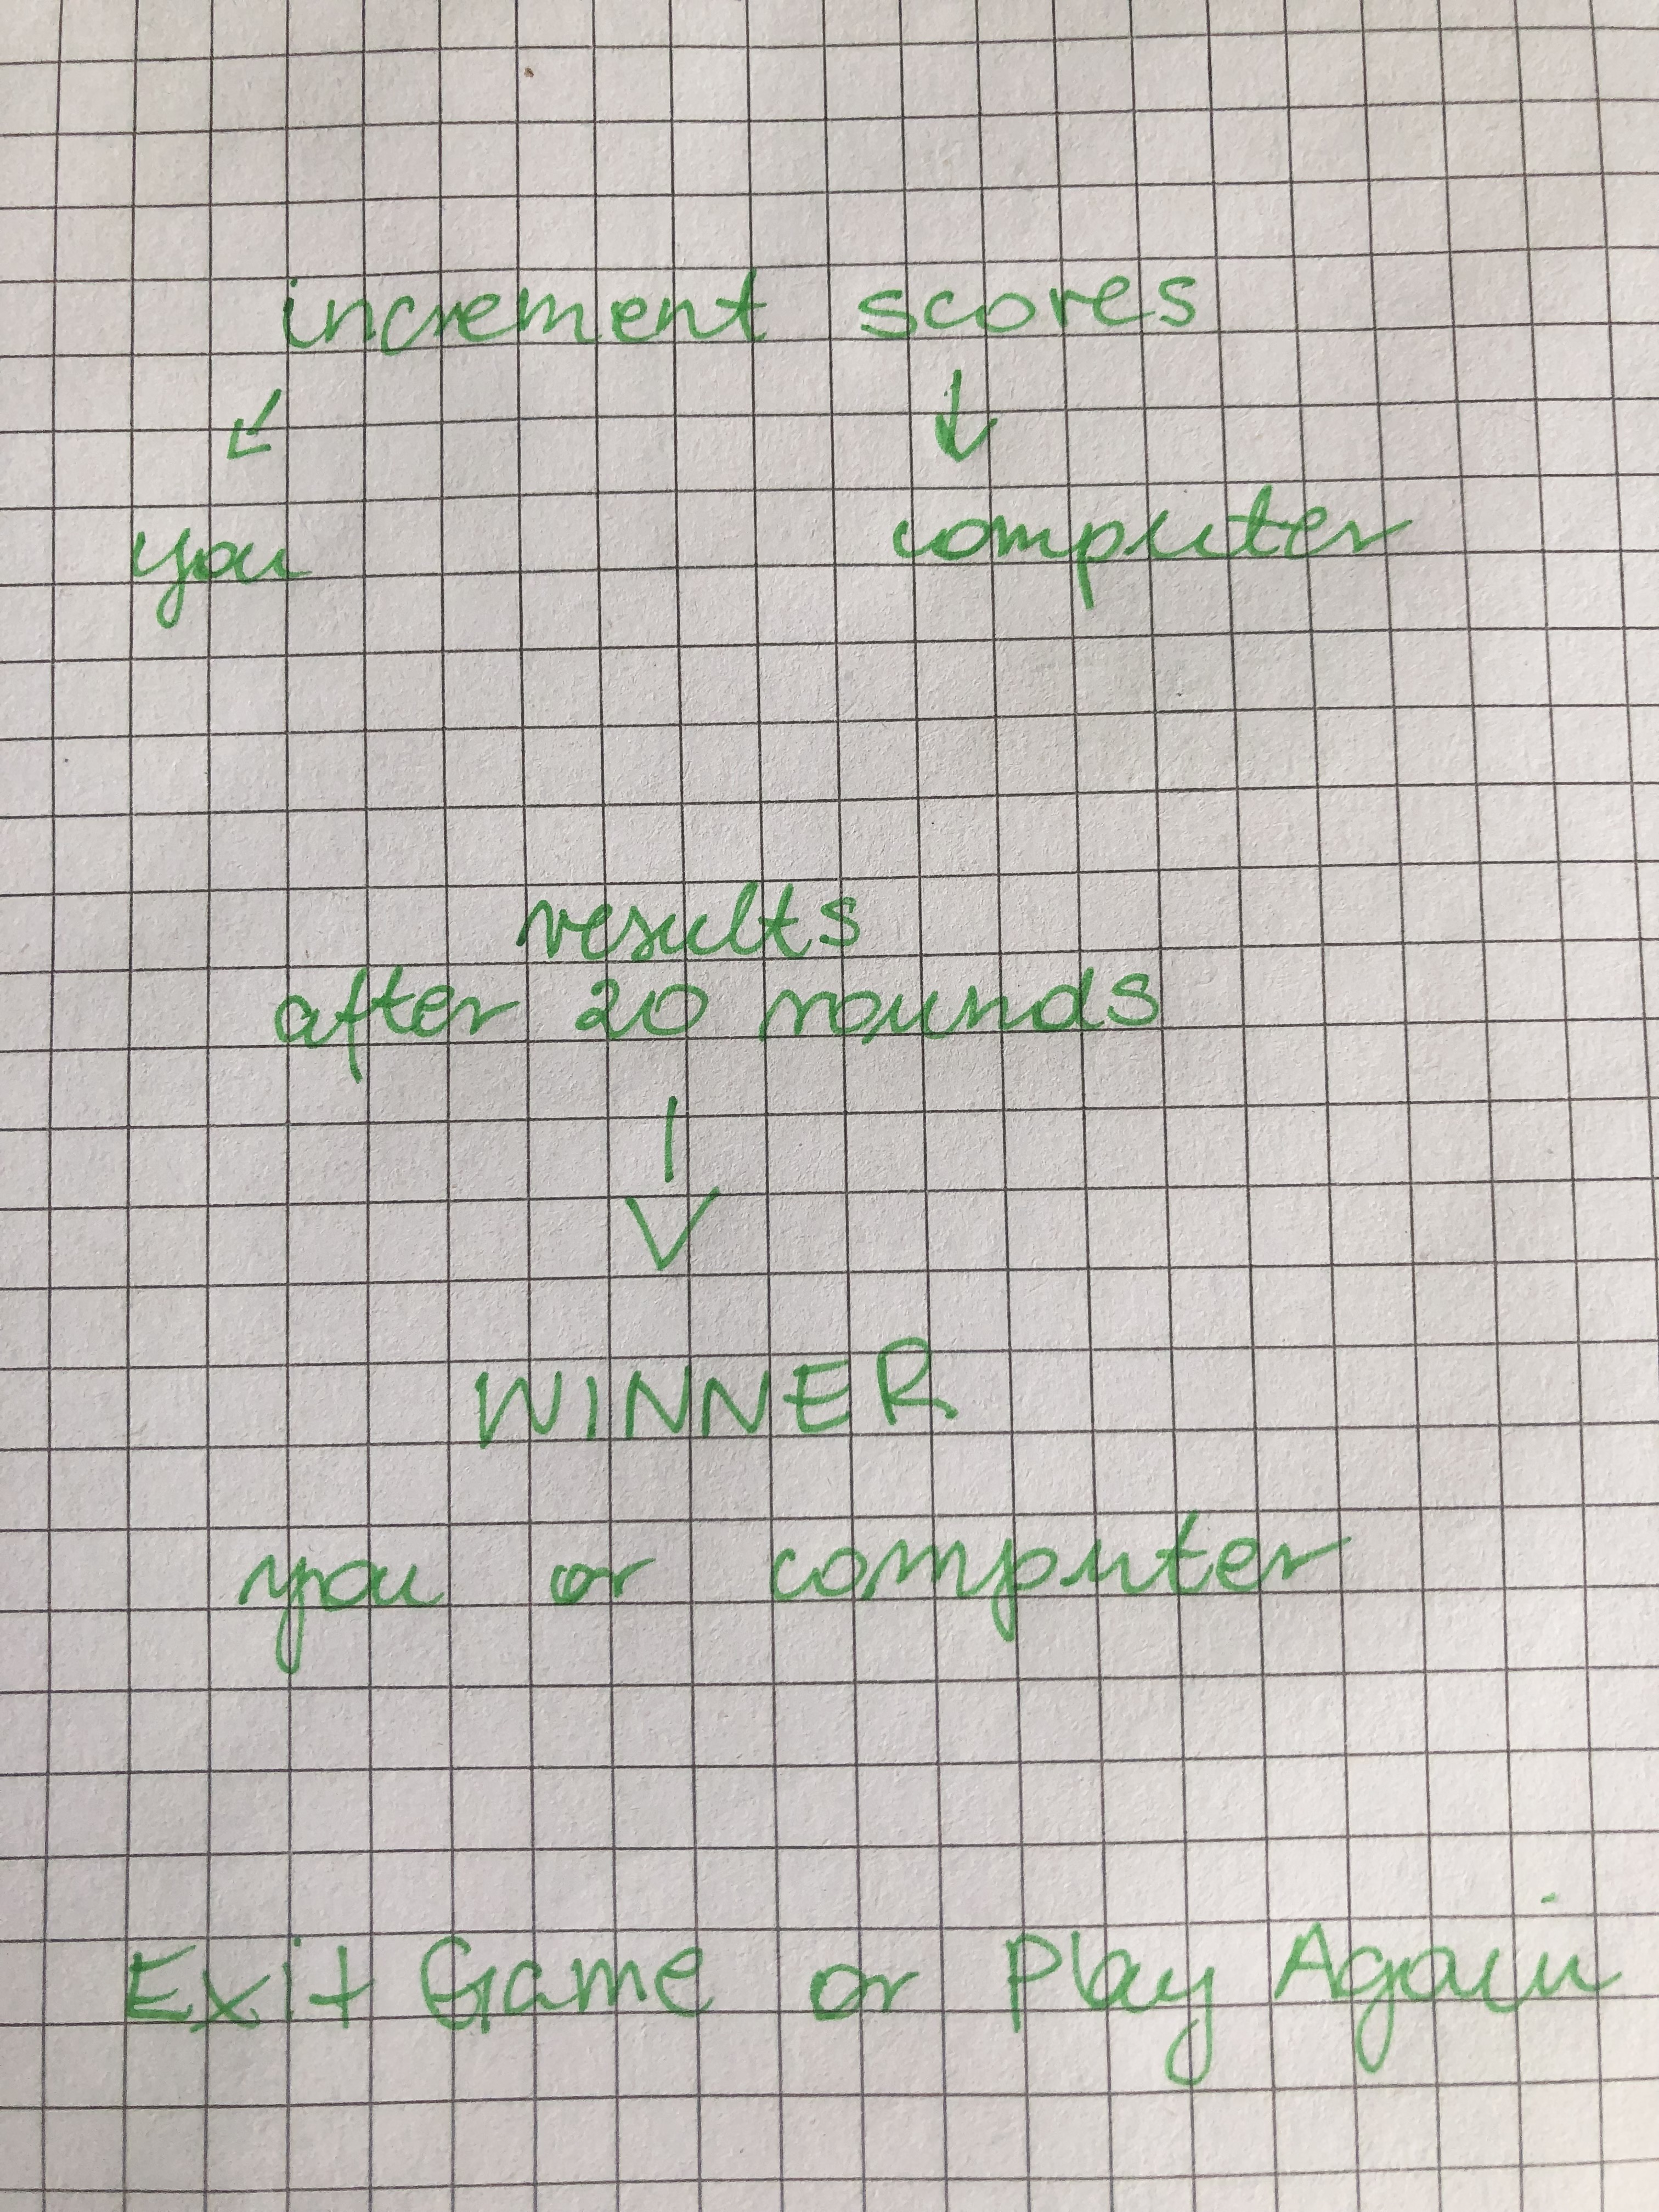 increment scores
you computer
results
after 20 rounds
WINNER
you or computer
Exit Game or Play Again